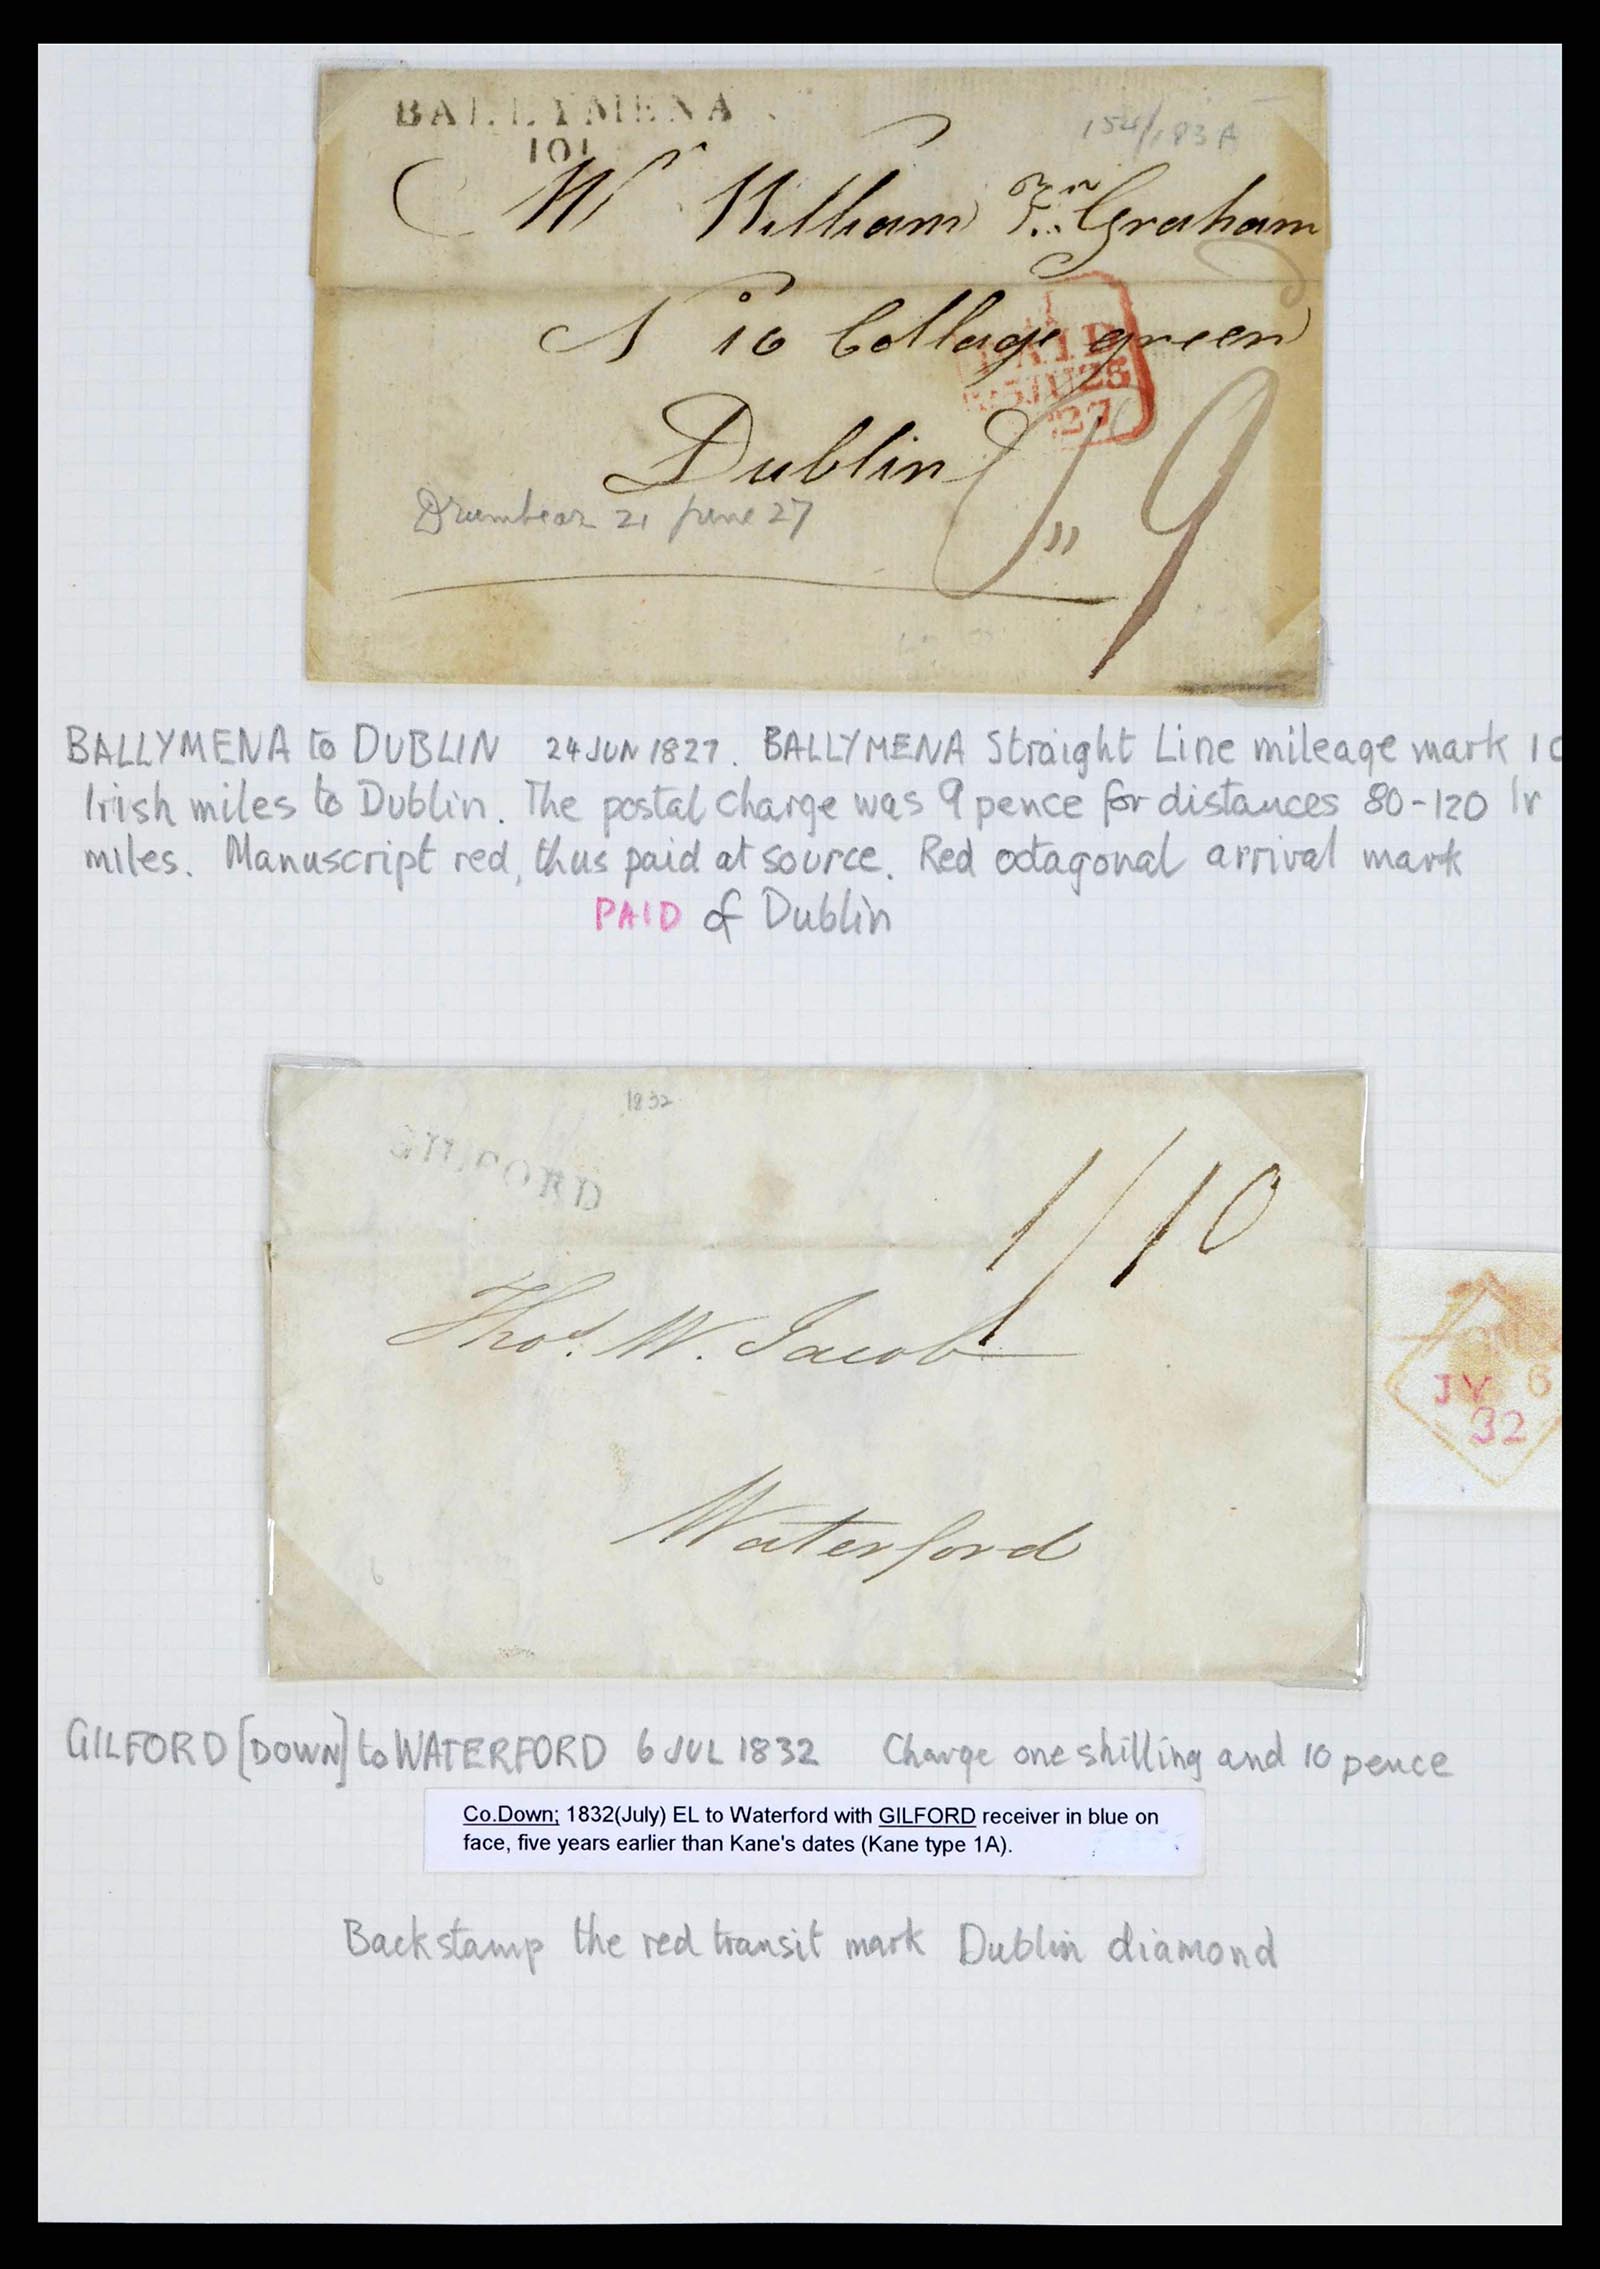 BALLYMENA
101
154/183A
Mr William Fn Graham
No 10 Collage green
Dublin
PAID
JU 25
27
9
Drumbear 21 June 27
BALLYMENA to DUBLIN 24 JUN 1827. BALLYMENA Straight Line mileage mark 10
Irish miles to Dublin. The postal charge was 9 pence for distances 80-120 Ir
miles. Manuscript red, thus paid at source. Red octagonal arrival mark
PAID of Dublin
1832
GILFORD
1/10
Thos. W. Jacob
Waterford
JY 6
32
GILFORD [DOWN] to WATERFORD 6 JUL 1832 Charge one shilling and 10 pence
Co.Down; 1832(July) EL to Waterford with GILFORD receiver in blue on
face, five years earlier than Kane's dates (Kane type 1A).
Backstamp the red transit mark Dublin diamond